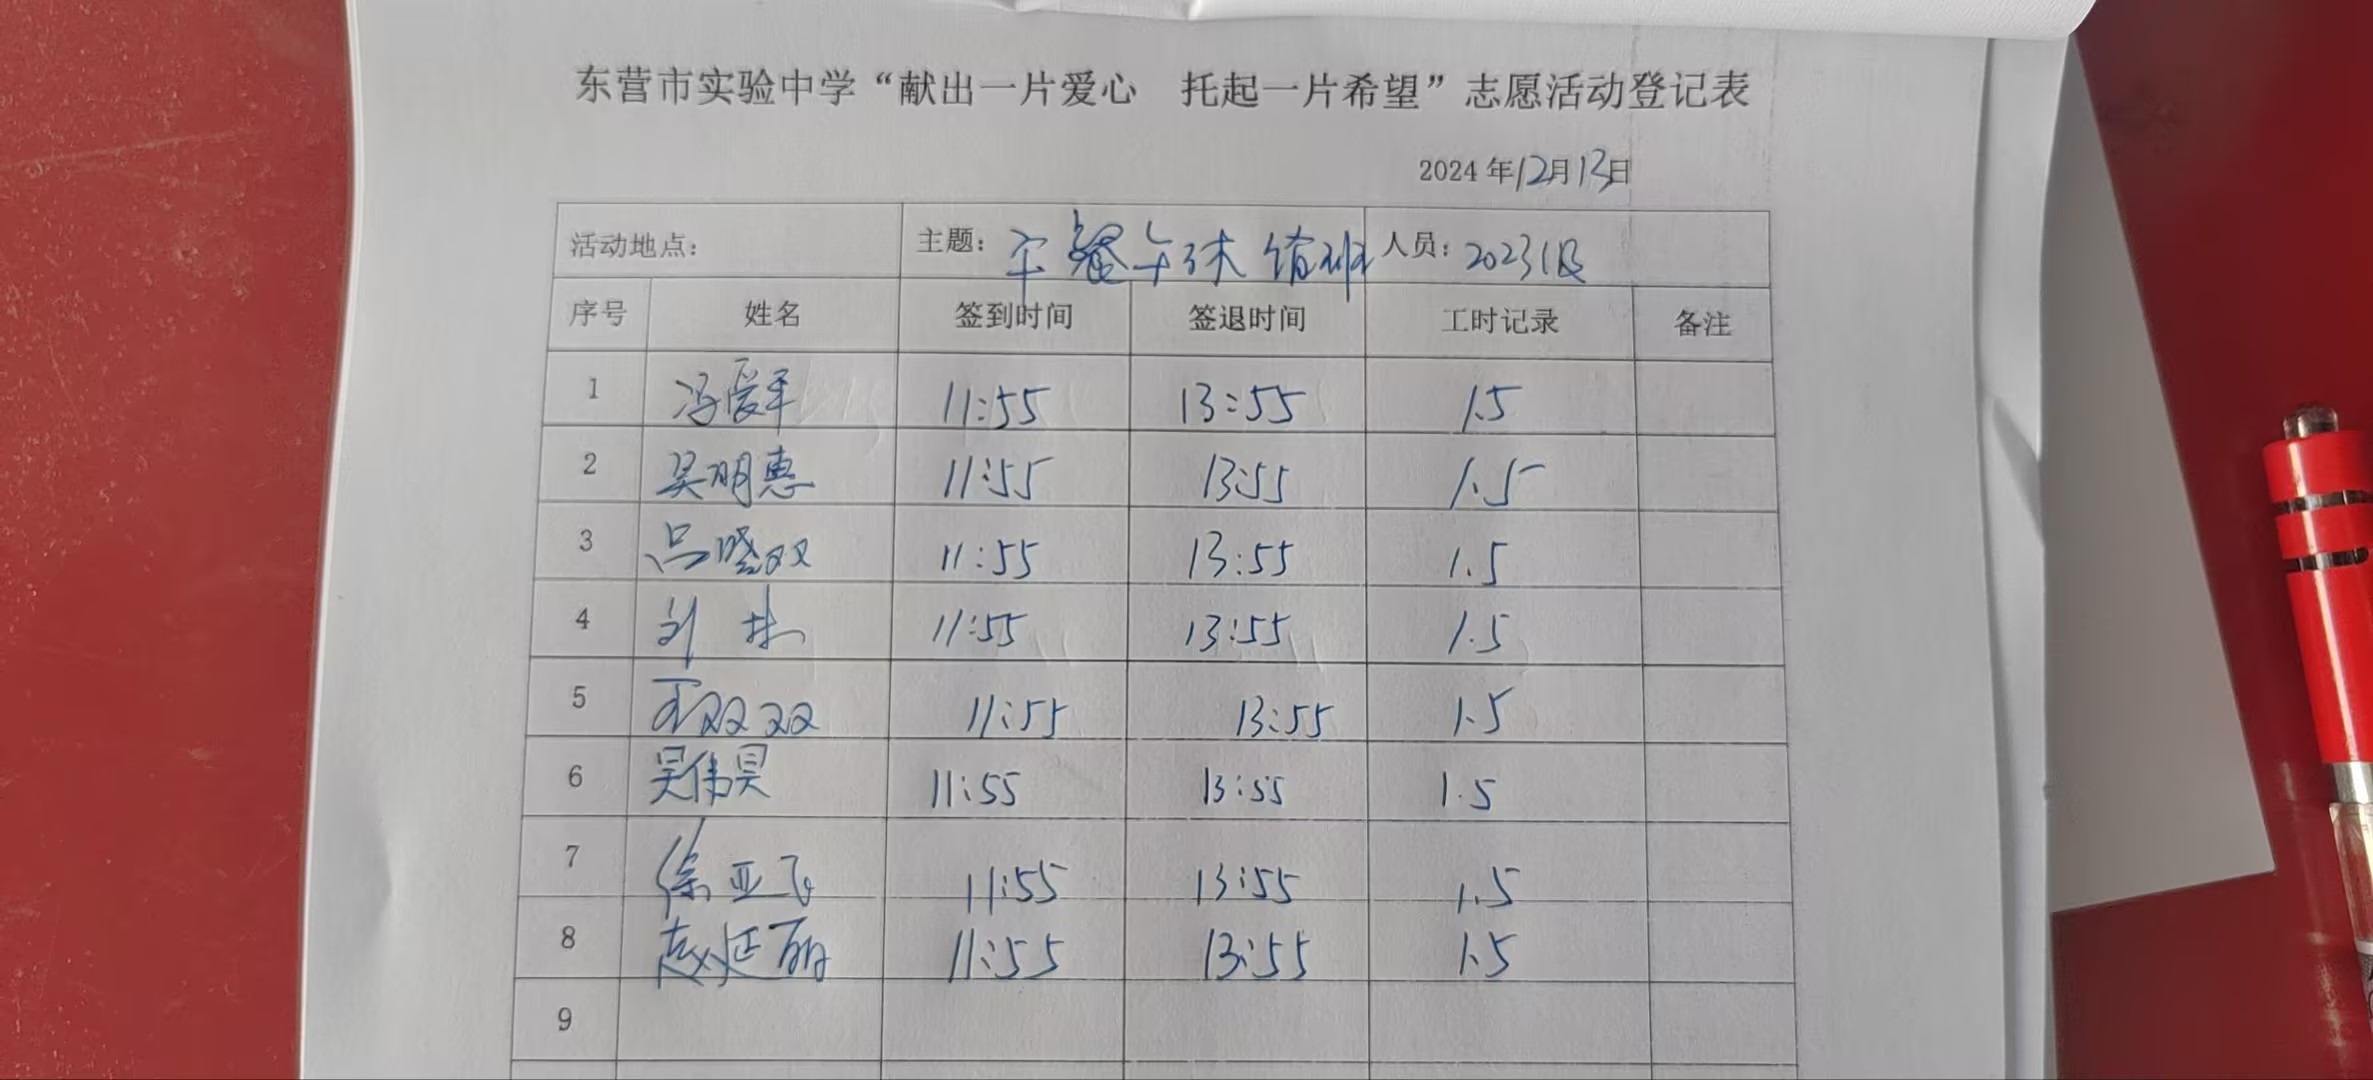 东营市实验中学“献出一片爱心 托起一片希望”志愿活动登记表
2024年12月13日
活动地点： 主题：午餐午休值班 人员：2023级
序号 姓名 签到时间 签退时间 工时记录 备注
1 冯爱军 11:55 13:55 1.5
2 吴明惠 11:55 13:55 1.5
3 吕晓双 11:55 13:55 1.5
4 刘 11:55 13:55 1.5
5 王双双 11:55 13:55 1.5
6 吴伟昊 11:55 13:55 1.5
7 徐亚飞 11:55 13:55 1.5
8 赵延丽 11:55 13:55 1.5
9